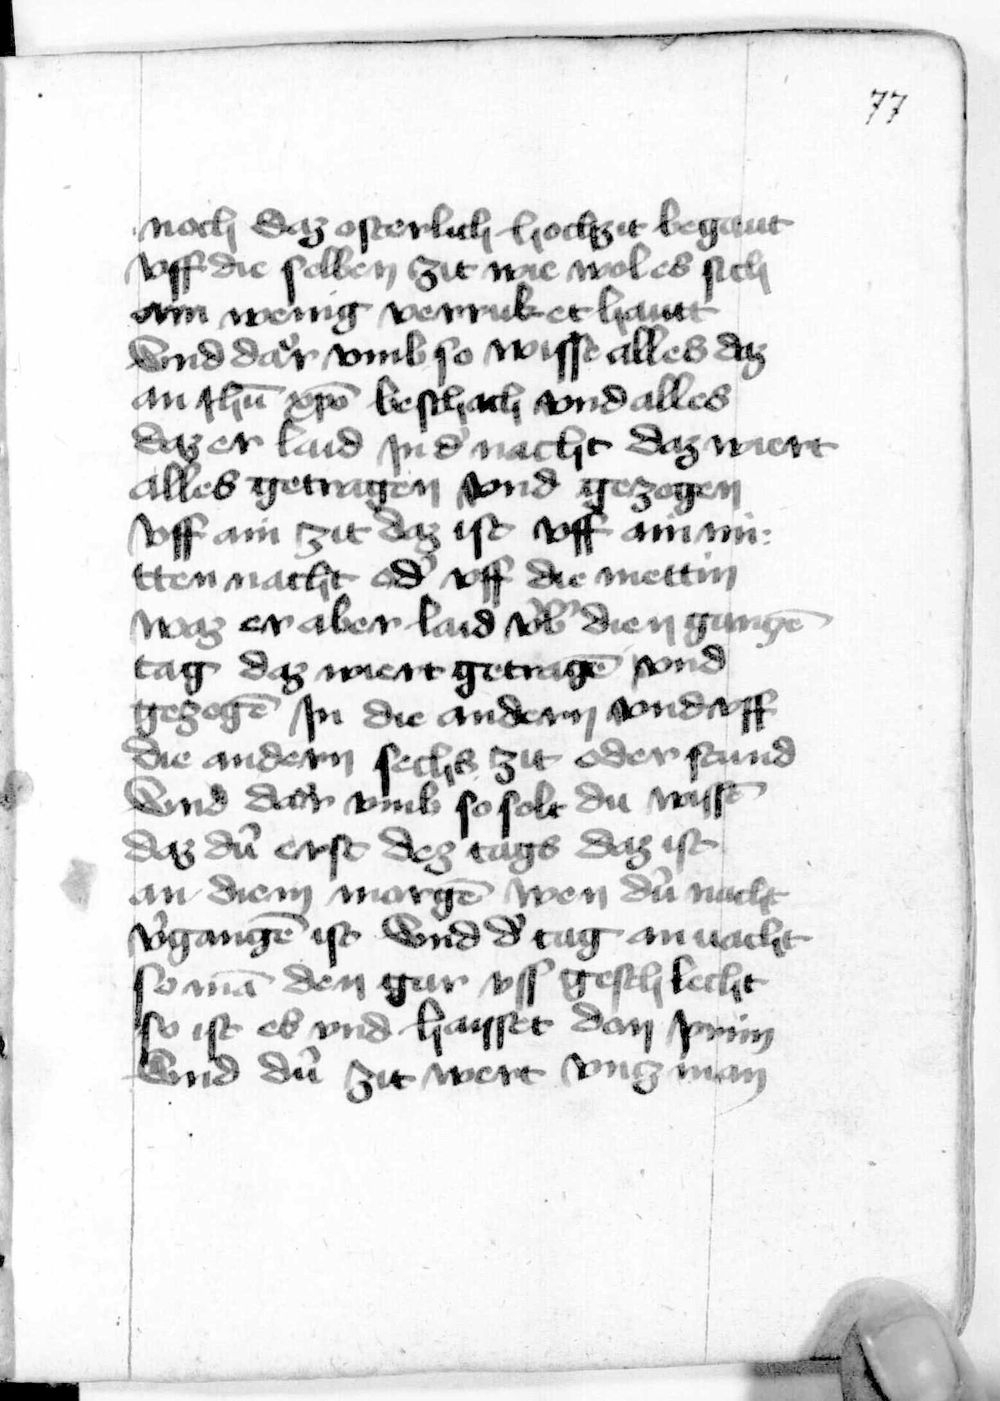 77
noch daz osterlich hochzit begaut
vff die selben zit wie wol es sich
ain wenig verruket hautt
Vnd dar vmb so wisse alles daz
an ihū xp̄o beschach vnd alles
daz er laid in d' nacht daz wiert
alles getragen vnd gezogen
vff ain zit daz ist vff ain mi:
tten nacht od' vff die mettin
waz er aber laid v̍b' dien gantzē
tag daz wiert getragē vnd
gezogē In die andern vnd vff
die andern sechs zit oder stund
Vnd dar vmb so solt du wissē
daz dù erst dez tags daz ist
an diem morgē wen dù nacht
v'gangē ist Vnd d' tag an nacht
so mā den gar vss geschlecht
so ist es vnd haisset don prim
Vnd dù zit wert vntz man